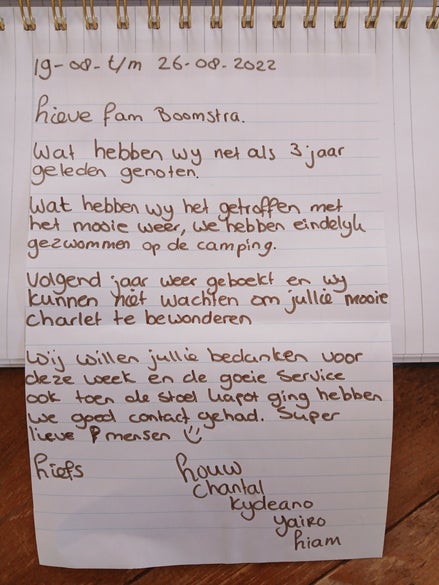 19-08- t/m 26-08-2022
Lieve fam Boomstra.
Wat hebben wy net als 3 jaar
geleden genoten.
Wat hebben wy het getroffen met
het mooie weer, we hebben eindelyk
gezwommen op de camping.
Volgend jaar weer geboekt en wy
kunnen niet wachten om jullie mooie
Charlet te bewonderen
Wij willen jullie bedanken voor
deze week en de goeie Service
ook toen de stoel kapot ging hebben
we goed contact gehad. Super
lieve mensen
Liefs Louw
Chantal
Kydeano
Yairo
Liam